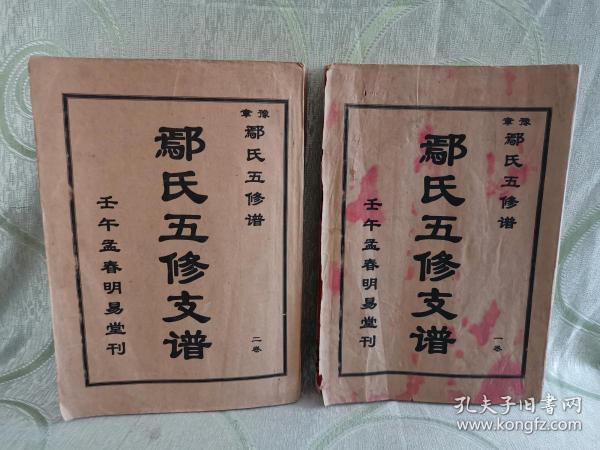 豫章
鄢氏五修谱
鄢氏五修支谱
壬午孟春明易堂刊
二卷
豫章
鄢氏五修谱
鄢氏五修支谱
壬午孟春明易堂刊
一卷
孔夫子旧书网
www.kongfz.com